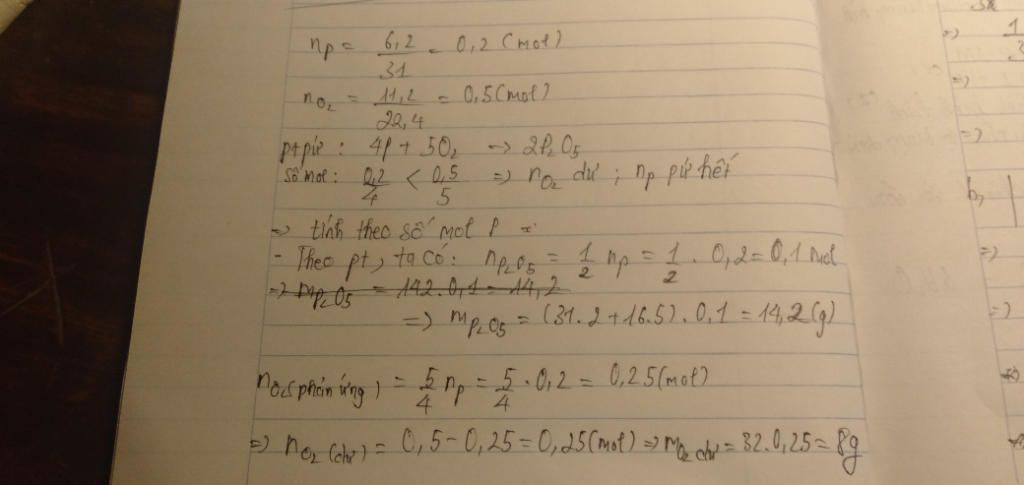 nP = 6,2/31 = 0,2 (mol)
nO₂ = 11,2/22,4 = 0,5 (mol)
ptpứ : 4P + 5O₂ → 2P₂O₅
số mol : 0,2/4 < 0,5/5 => nO₂ dư ; nP pứ hết
=> tính theo số mol P
- Theo pt, ta có : nP₂O₅ = 1/2 nP = 1/2 . 0,2 = 0,1 mol
=> mP₂O₅ = 142 . 0,1 = 14,2
=> mP₂O₅ = (31.2 + 16.5) . 0,1 = 14,2 (g)
nO₂ (phản ứng) = 5/4 nP = 5/4 . 0,2 = 0,25 (mol)
=> nO₂ (dư) = 0,5 - 0,25 = 0,25 (mol) => mO₂ dư = 32.0,25 = 8g